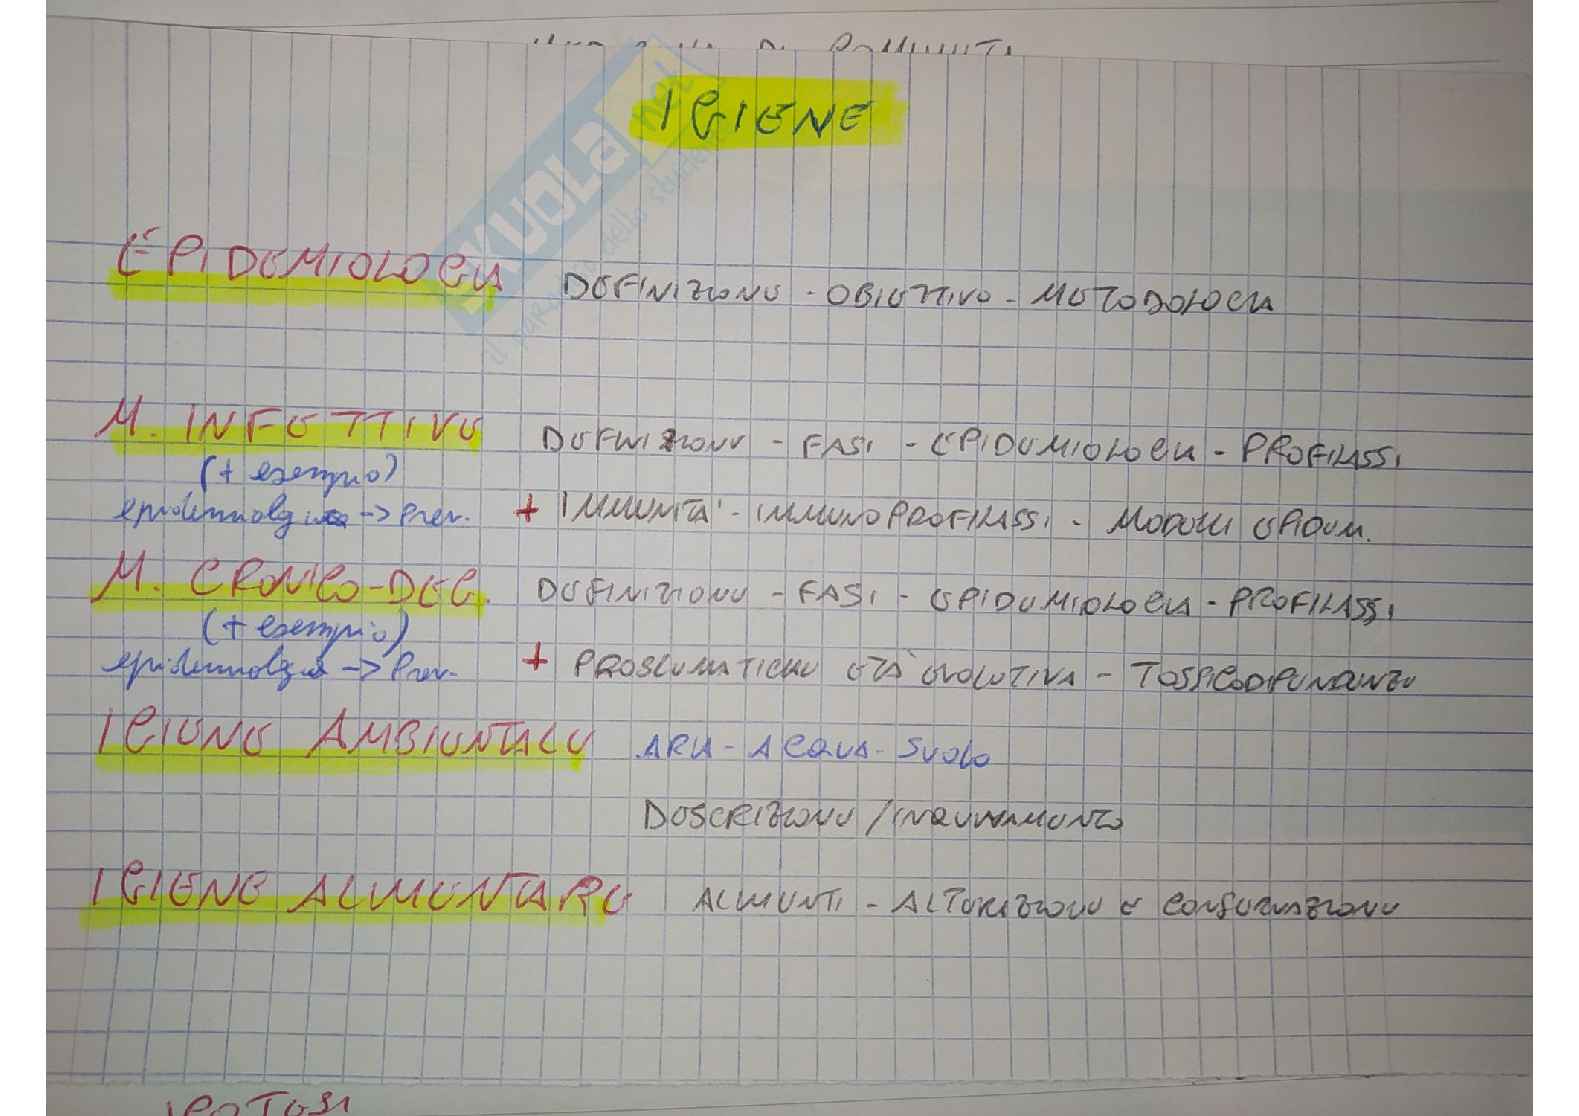 IGIENE
EPIDEMIOLOGIA DEFINIZIONE - OBIETTIVO - METODOLOGIA
M. INFETTIVE DEFINIZIONE - FASI - EPIDEMIOLOGIA - PROFILASSI
(+ esempio)
epidemiologia -> Prev. + IMMUNITA' - IMMUNOPROFILASSI - MODELLI EPIDEM.
M. CRONICO-DEG. DEFINIZIONE - FASI - EPIDEMIOLOGIA - PROFILASSI
(+ esempio)
epidemiologia -> Prev. + PROBLEMATICHE ETÀ EVOLUTIVA - TOSSICODIPENDENZE
IGIENE AMBIENTALE ARIA - ACQUA - SUOLO
DESCRIZIONE / INQUINAMENTO
IGIENE ALIMENTARE ALIMENTI - ALTERAZIONE E CONSERVAZIONE
IPOTESI
SKUOLA.net
il paradiso dello studente